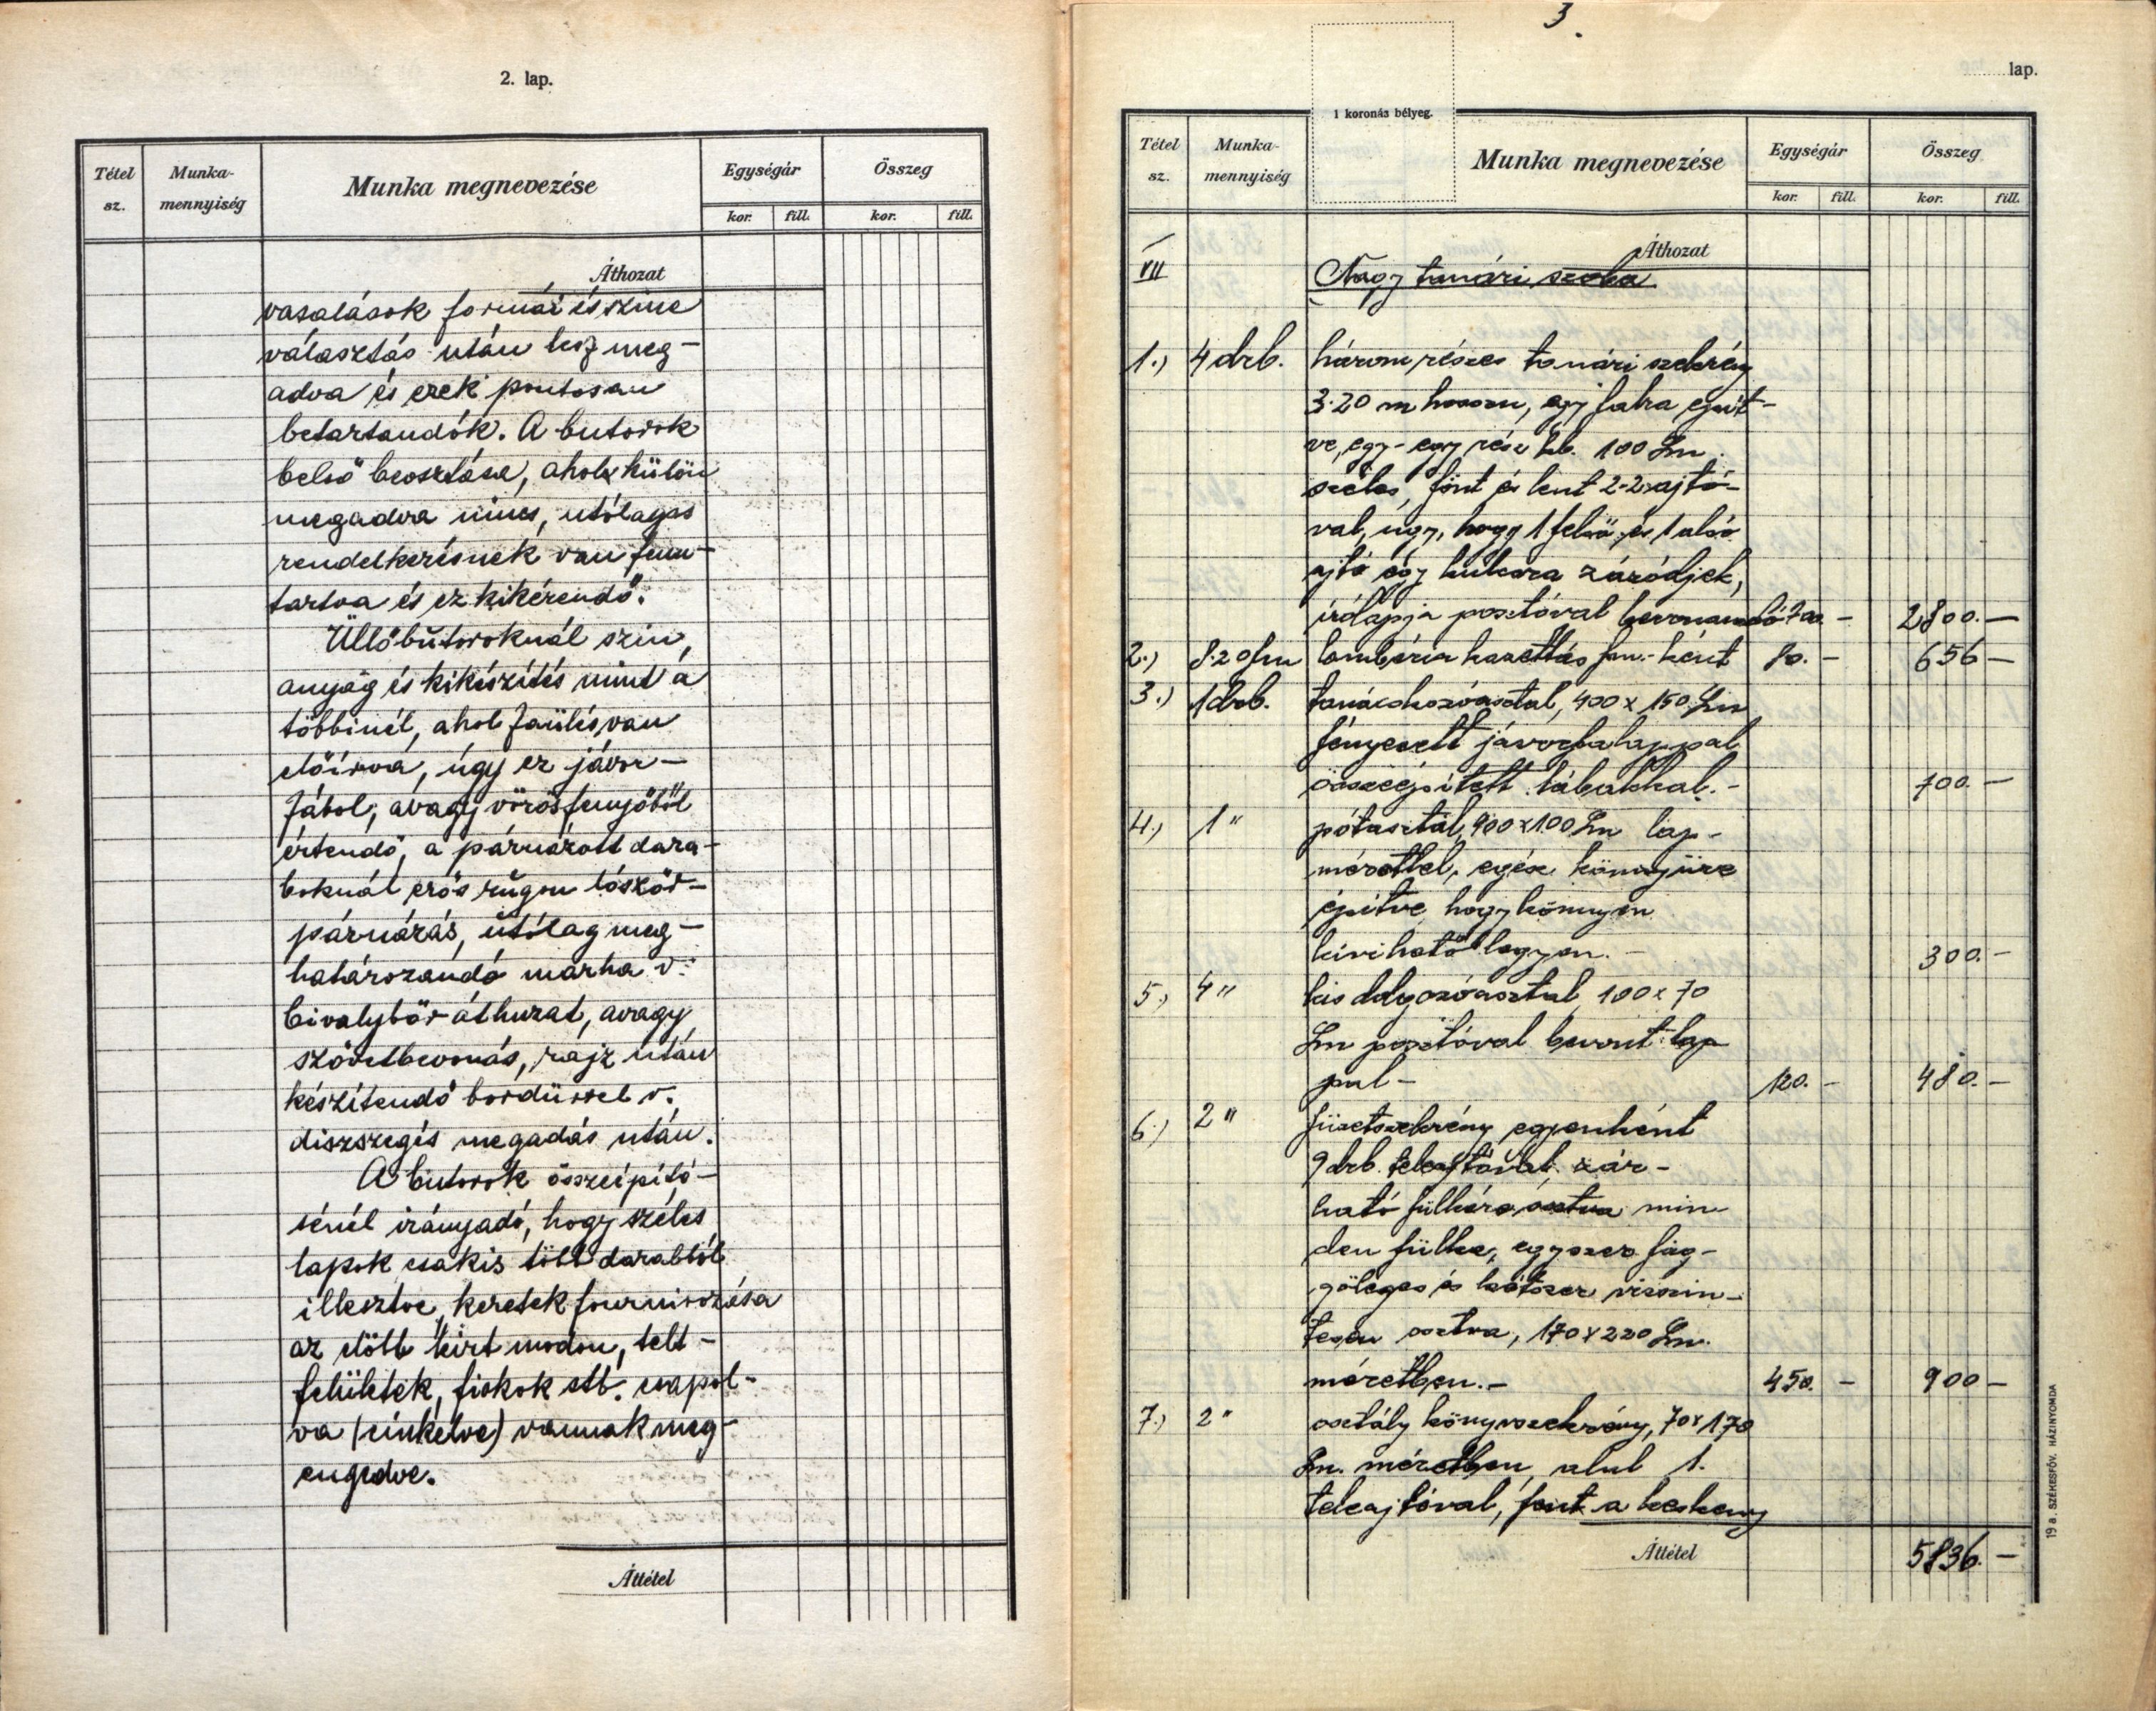 2. lap.
Tétel sz.
Munka-mennyiség
Munka megnevezése
Egységár
Összeg
kor.
fill.
kor.
fill.
Áthozat
vasalások formái és szine
választás után lesz meg-
adva és ezek pontosan
betartandók. A butorok
belső beosztása, ahol külön
megadva nincs, utólagos
rendelkezésnek van fenn-
tartva és ez kikérendő.
Üllőbútoroknál szin,
anyag és kikészítés mint a
többinél, ahol faülés van
előírva, úgy ez jávor-
fából, avagy vörösfenyőből
értendő, a párnázott dara-
boknál erős rúgon lószőr-
párnázás, utólag meg-
határozandó marha v.
bivalybőr áthuzat, avagy
szövetbevonás, rajz után
készítendő bordürrel v.
diszszegés megadás után.
A butorok összeépíté-
sénél irányadó, hogy széles
lapok csakis több darabból
illesztve, keretek fournirozása
az előbb leírt modon, telt-
felületek, fiokok stb. csapol-
va (cinkelve) vannak meg-
engedve.
Áttétel
3.
lap.
1 koronás bélyeg.
Tétel sz.
Munka-mennyiség
Munka megnevezése
Egységár
Összeg
kor.
fill.
kor.
fill.
Áthozat
VII Nagy tanári szoba
1.) 4 drb. három részes tanári szekrény
3.20 m hosszu, egy falra épít-
ve, egy-egy rész kb. 100 Cm
széles, fönt és lent 2-2 ajtó-
val, úgy, hogy 1 felső és 1 alsó
ajtó egy kulcsra záródjék,
írólapja posztóval bevonandó 700.- 2800.-
2.) 8.20 fm lambéria hozattás fm.-ként 80.- 656-
3.) 1 drb. tanácskozóasztal, 400 x 150 Cm
fényezett jávorfa lappal
összeépített lábakkal.- 700.-
4.) 1 " pótasztal, 900 x 100 Cm lap-
mérettel, egész könnyüre
építve, hogy könnyen
kivihető legyen.- 300.-
5.) 4 " kis dolgozóasztal 100 x 70
Cm posztóval bevont lap
pal- 120.- 480.-
6.) 2 " füzetszekrény egyenként
9 drb. teleajtóval, zár-
ható fülkére osztva min
den fülke, egyszer füg-
gőleges és kétszer vizszin-
tesen osztva, 170 x 220 Cm.
méretben.- 450.- 900-
7.) 2 " osztály könyvszekrény, 70 x 170
Cm. méretben, alul 1.
teleajtóval, fönt a keskeny
Áttétel 5836.-
19 a. SZÉKESFŐV. HÁZINYOMDA